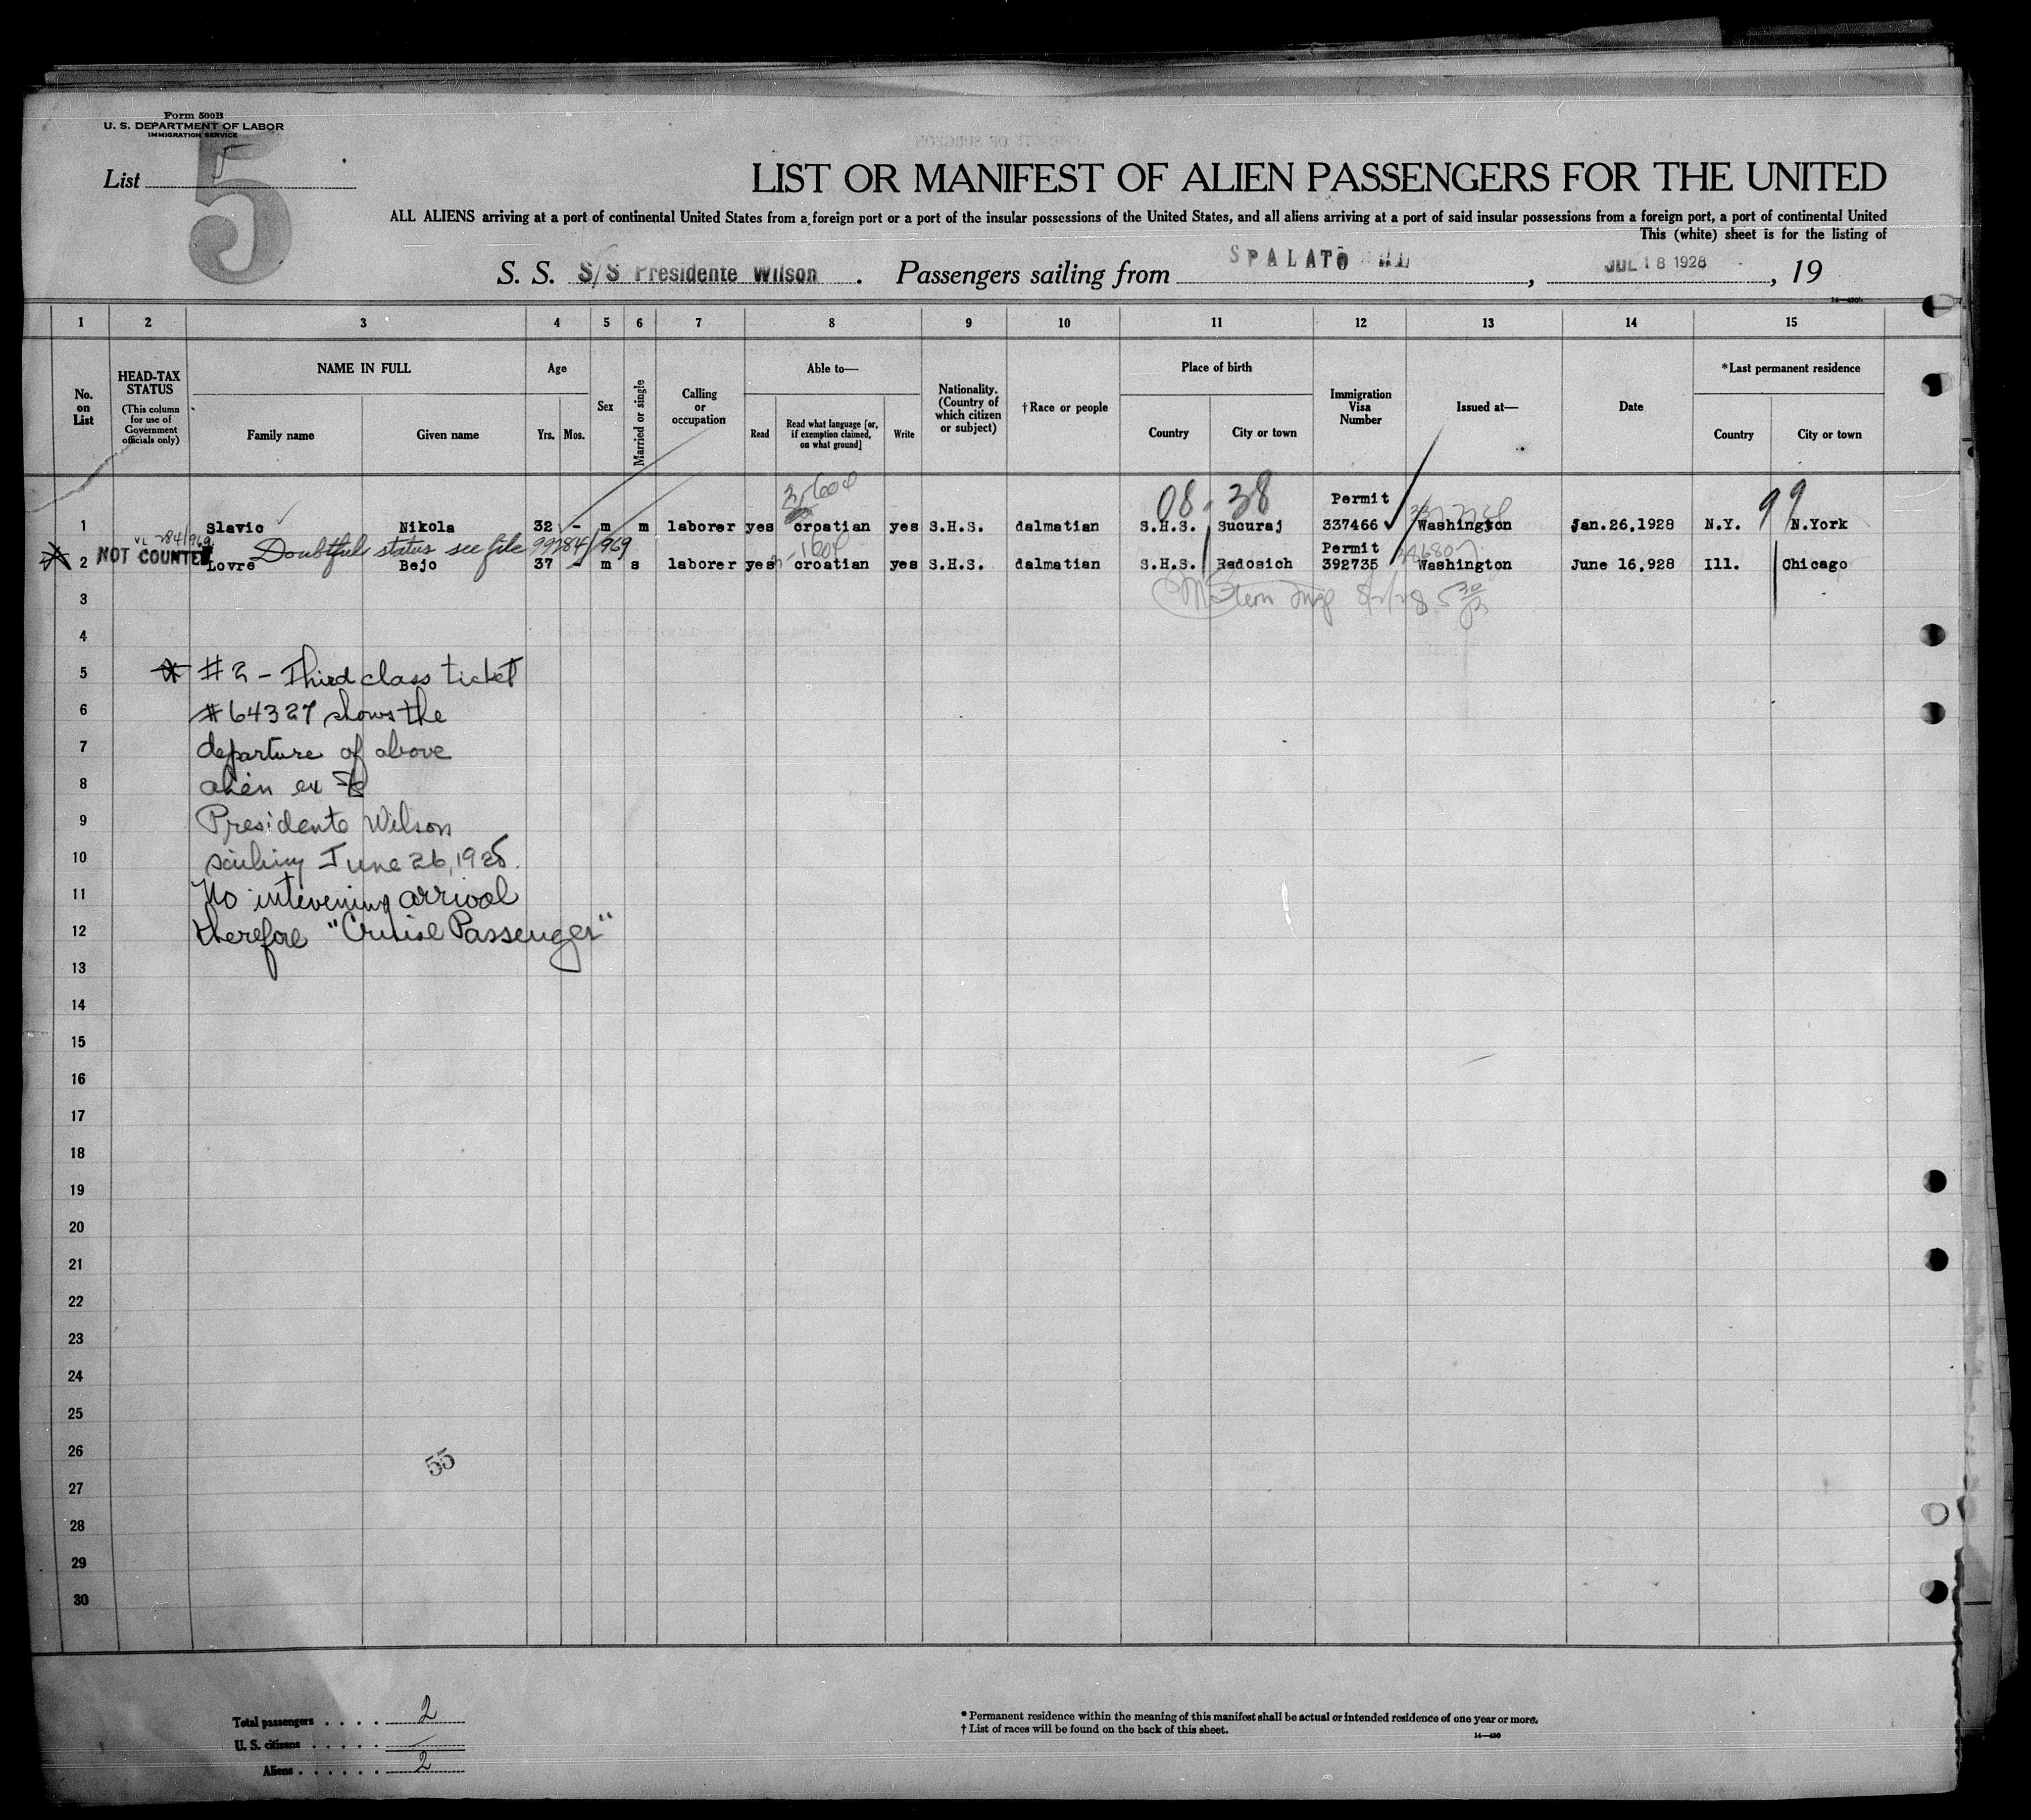 Form 500B
U. S. DEPARTMENT OF LABOR
IMMIGRATION SERVICE
List 5
5
LIST OR MANIFEST OF ALIEN PASSENGERS FOR THE UNITED
ALL ALIENS arriving at a port of continental United States from a foreign port or a port of the insular possessions of the United States, and all aliens arriving at a port of said insular possessions from a foreign port, a port of continental United
This (white) sheet is for the listing of
S. S. S/S Presidente Wilson. Passengers sailing from SPALATO, JUL 18 1928, 19
1 2 3 4 5 6 7 8 9 10 11 12 13 14 15
No. on List
HEAD-TAX STATUS (This column for use of Government officials only)
NAME IN FULL
Family name Given name
Age
Yrs. Mos.
Sex
Married or single
Calling or occupation
Able to—
Read
Read what language [or, if exemption claimed, on what ground]
Write
Nationality. (Country of which citizen or subject)
†Race or people
Place of birth
Country City or town
Immigration Visa Number
Issued at—
Date
*Last permanent residence
Country City or town
08 38 Permit 99
1 Slavic Nikola 32 - m m laborer yes croatian yes S.H.S. dalmatian S.H.S. Sucuraj 337466 Washington Jan.26,1928 N.Y. N.York
NOT COUNTED Doubtful status see file 99284/969 Permit
2 Lovre Bejo 37 - m s laborer yes croatian yes S.H.S. dalmatian S.H.S. Radosich 392735 Washington June 16,928 Ill. Chicago
3
4
5 #2 - Third class ticket
6 #64327 shows the
7 departure of above
8 alien ex S/S
9 Presidente Wilson
10 sailing June 26, 1928.
11 No intevening arrival
12 therefore "Cruise Passenger"
13
14
15
16
17
18
19
20
21
22
23
24
25
26
55
27
28
29
30
Total passengers . . . . 2
U. S. citizens . . . . . /
Aliens . . . . . . 2
* Permanent residence within the meaning of this manifest shall be actual or intended residence of one year or more.
† List of races will be found on the back of this sheet.